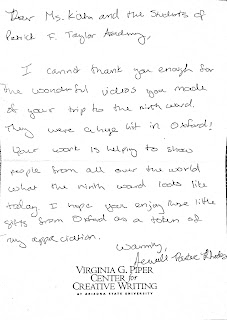 Dear Ms. Kahn and the Students of
Patrick F. Taylor Academy,
I cannot thank you enough for
the wonderful videos you made
of your trip to the ninth ward.
They were a huge hit in Oxford!
Your work is helping to show
people from all over the world
what the ninth ward looks like
today. I hope you enjoy these little
gifts from Oxford as a token of
my appreciation.
Warmly,
Jewell Parker Rhodes
VIRGINIA G. PIPER
CENTER for
CREATIVE WRITING
AT ARIZONA STATE UNIVERSITY